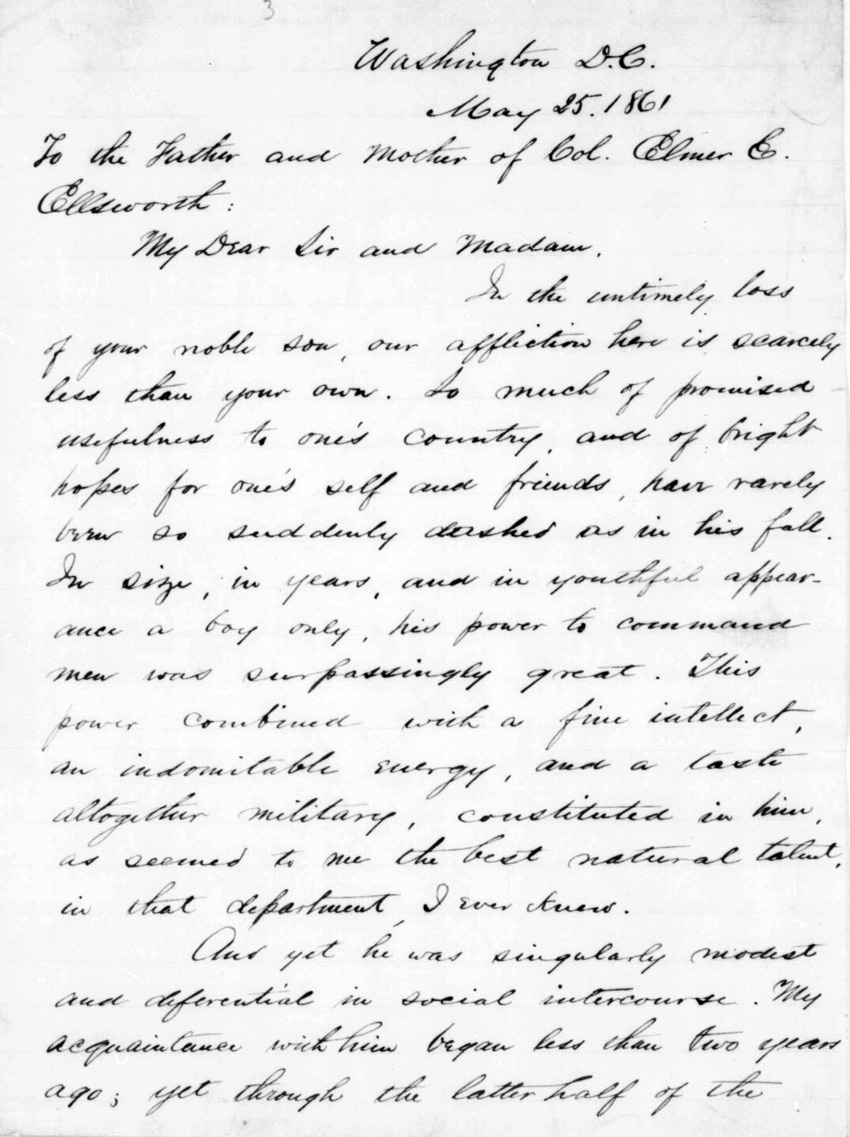 3
Washington D.C.
May 25. 1861
To the Father and Mother of Col. Elmer E.
Ellsworth:
My Dear Sir and Madam,
In the untimely loss
of your noble son, our affliction here is scarcely
less than your own. So much of promised
usefulness to one's country, and of bright
hopes for one's self and friends, have rarely
been so suddenly dashed as in his fall.
In size, in years, and in youthful appear-
ance a boy only, his power to command
men was surpassingly great. This
power combined with a fine intellect,
an indomitable energy, and a taste
altogether military, constituted in him,
as seemed to me the best natural talent,
in that department, I ever knew.
And yet he was singularly modest
and deferential in social intercourse. My
acquaintance with him began less than two years
ago; yet through the latter half of the